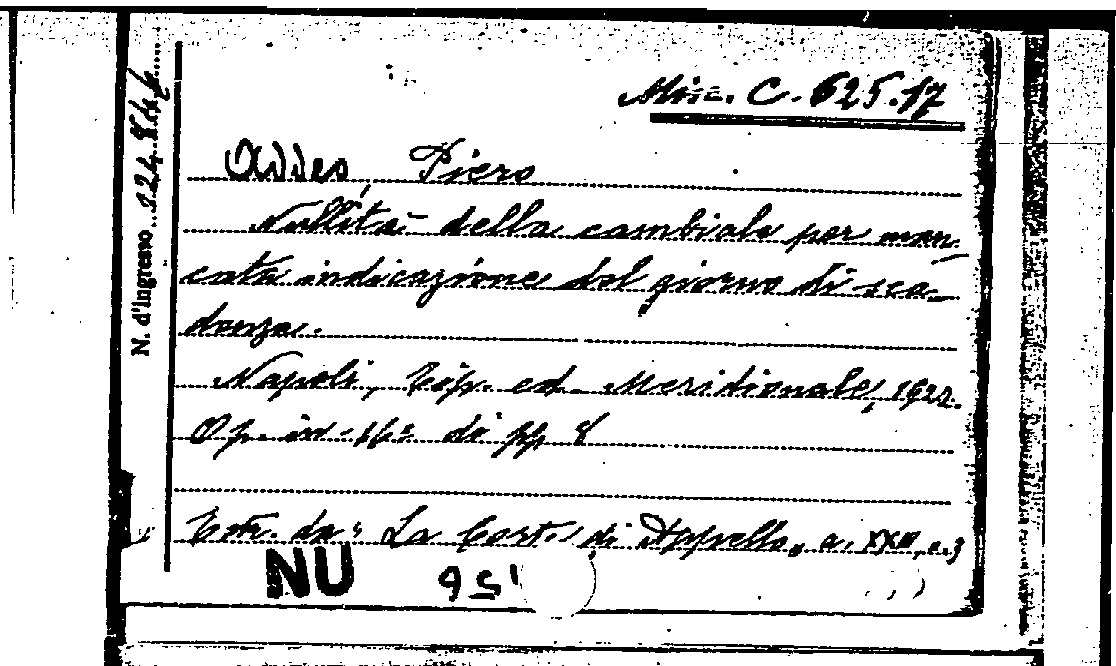 Misc. C. 625.17
Addeo, Piero
Nullità della cambiale per man-
cata indicazione del giorno di sca-
denza.
Napoli, Tip. ed. Meridionale, 1922.
Op. in-16° di pp. 8
Estr. da: La Corte di Appello, a. XXII, n. 3
NU
N. d'ingresso